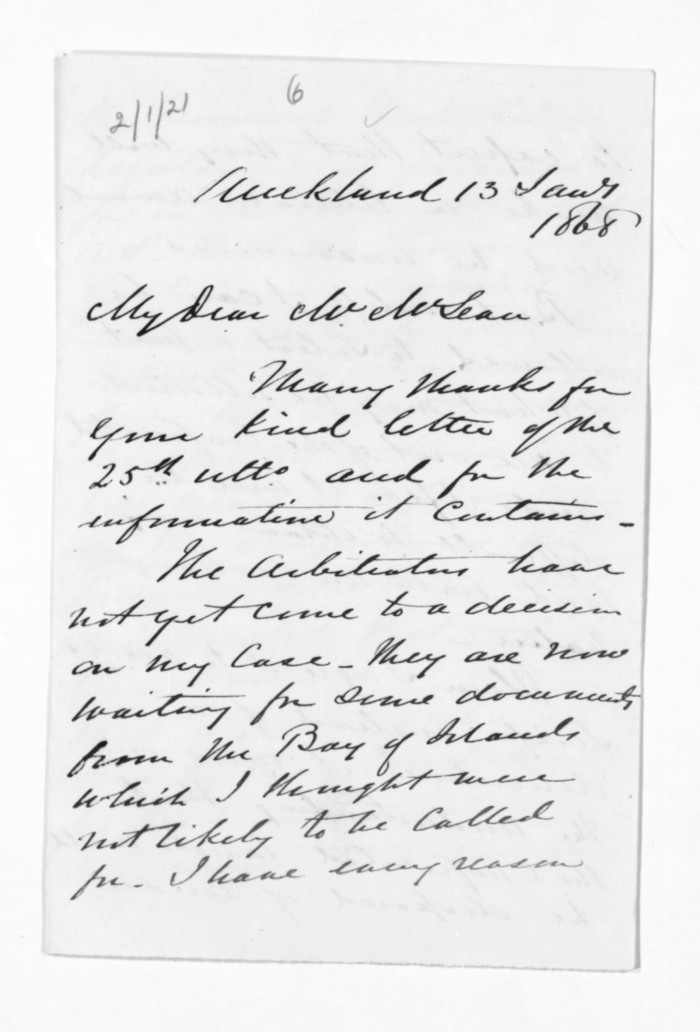 2/1/21
6
Auckland 13 Jany
1868
My Dear Mr McLean
Many thanks for
your kind letter of the
25th ulto. and for the
information it contains -
The Arbitrators have
not yet come to a decision
on my Case - they are now
waiting for some documents
from the Bay of Islands
which I thought were
not likely to be Called
for - I have every reason